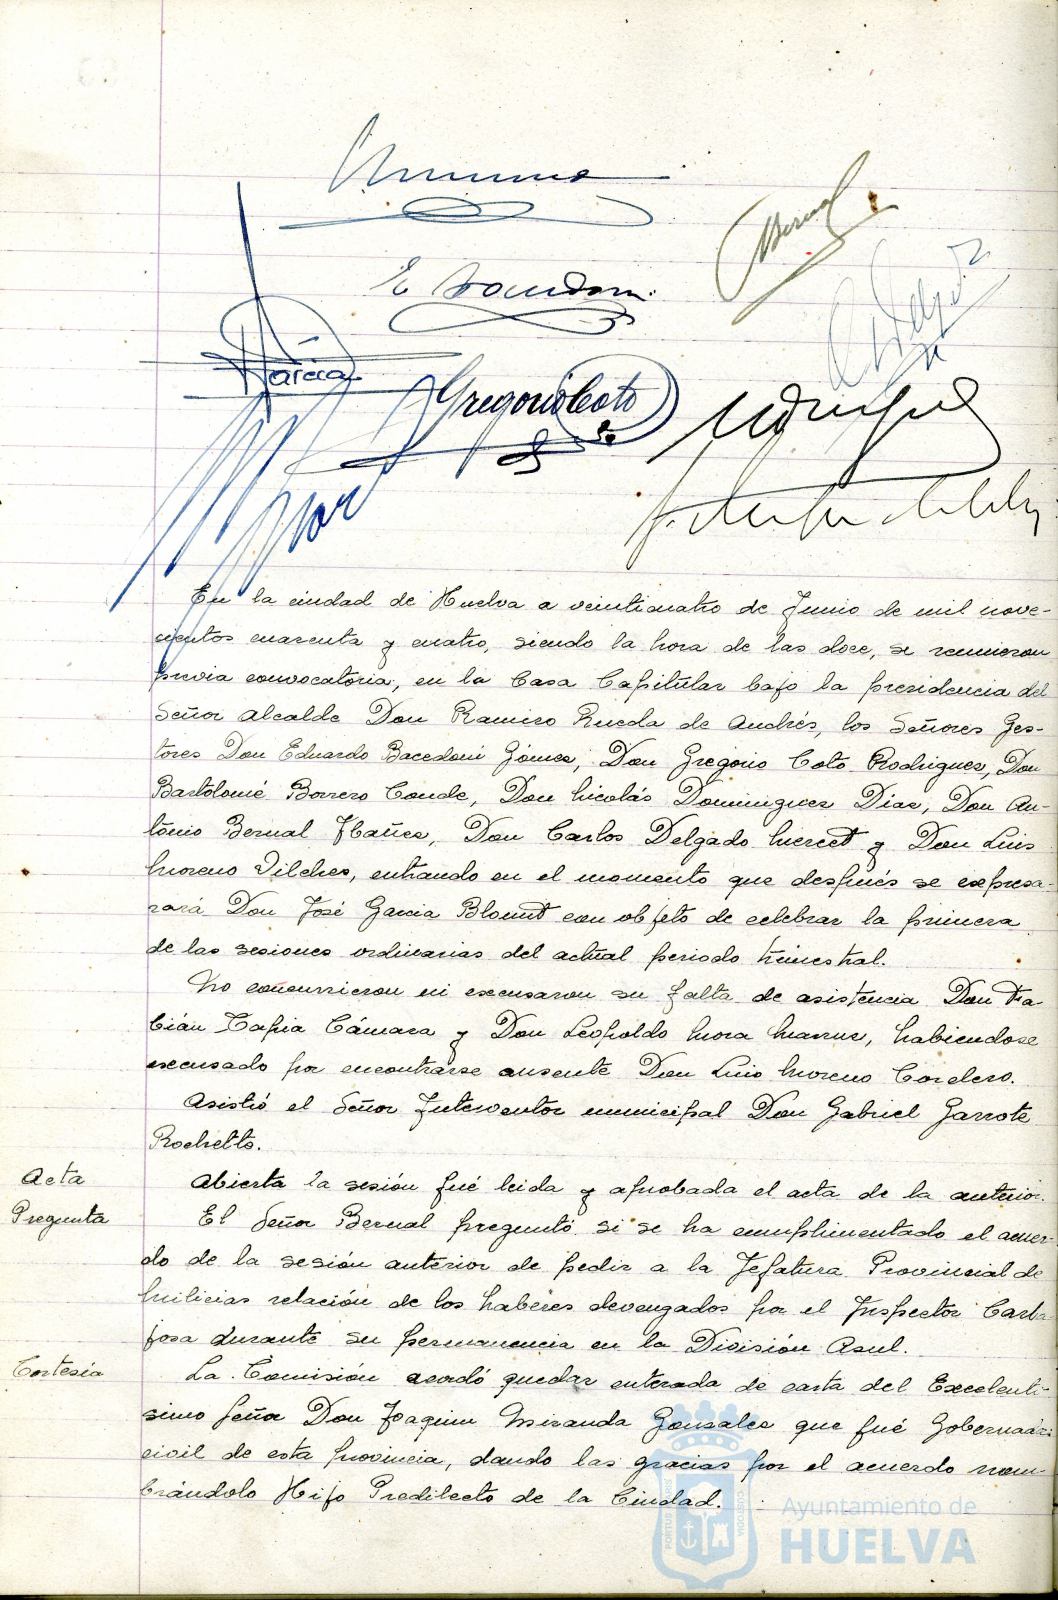 Bernal
García
Gregorio Coto
En la ciudad de Huelva a veinticuatro de Junio de mil nove-
cientos cuarenta y cuatro, siendo la hora de las doce, se reunieron
previa convocatoria, en la Casa Capitular bajo la presidencia del
Señor Alcalde Don Ramiro Rueda de Andrés, los Señores Ges-
tores Don Eduardo Bacedoni Gómez, Don Gregorio Coto Rodriguez, Don
Bartolomé Borrero Conde, Don Nicolás Dominguez Diaz, Don An-
tonio Bernal Ibañez, Don Carlos Delgado Mercet y Don Luis
Moreno Vilches, entrando en el momento que después se expresa-
rará Don José Garcia Blount con objeto de celebrar la primera
de las sesiones ordinarias del actual periodo trimestral.
No concurrieron ni excusaron su falta de asistencia Don Fa-
bián Tapia Cámara y Don Leopoldo Mora habiendose
excusado por encontrarse ausente Don Luis Moreno Cordero.
Asistió el Señor Interventor municipal Don Gabriel Garrote
Rochetto.
Acta
Abierta la sesión fué leida y aprobada el acta de la anterior.
Pregunta
El Señor Bernal preguntó si se ha cumplimentado el acuer-
do de la sesión anterior de pedir a la Jefatura Provincial de
Milicias relación de los haberes devengados por el Inspector Carba-
josa durante su permanencia en la División Asul.
Cortesía
La Comisión acordó quedar enterada de carta del Excelentí-
simo Señor Don Joaquim Miranda Gonzalez que fué Gobernador
civil de esta provincia, dando las gracias por el acuerdo nom-
brándolo Hijo Predilecto de la Ciudad.
Ayuntamiento de
HUELVA